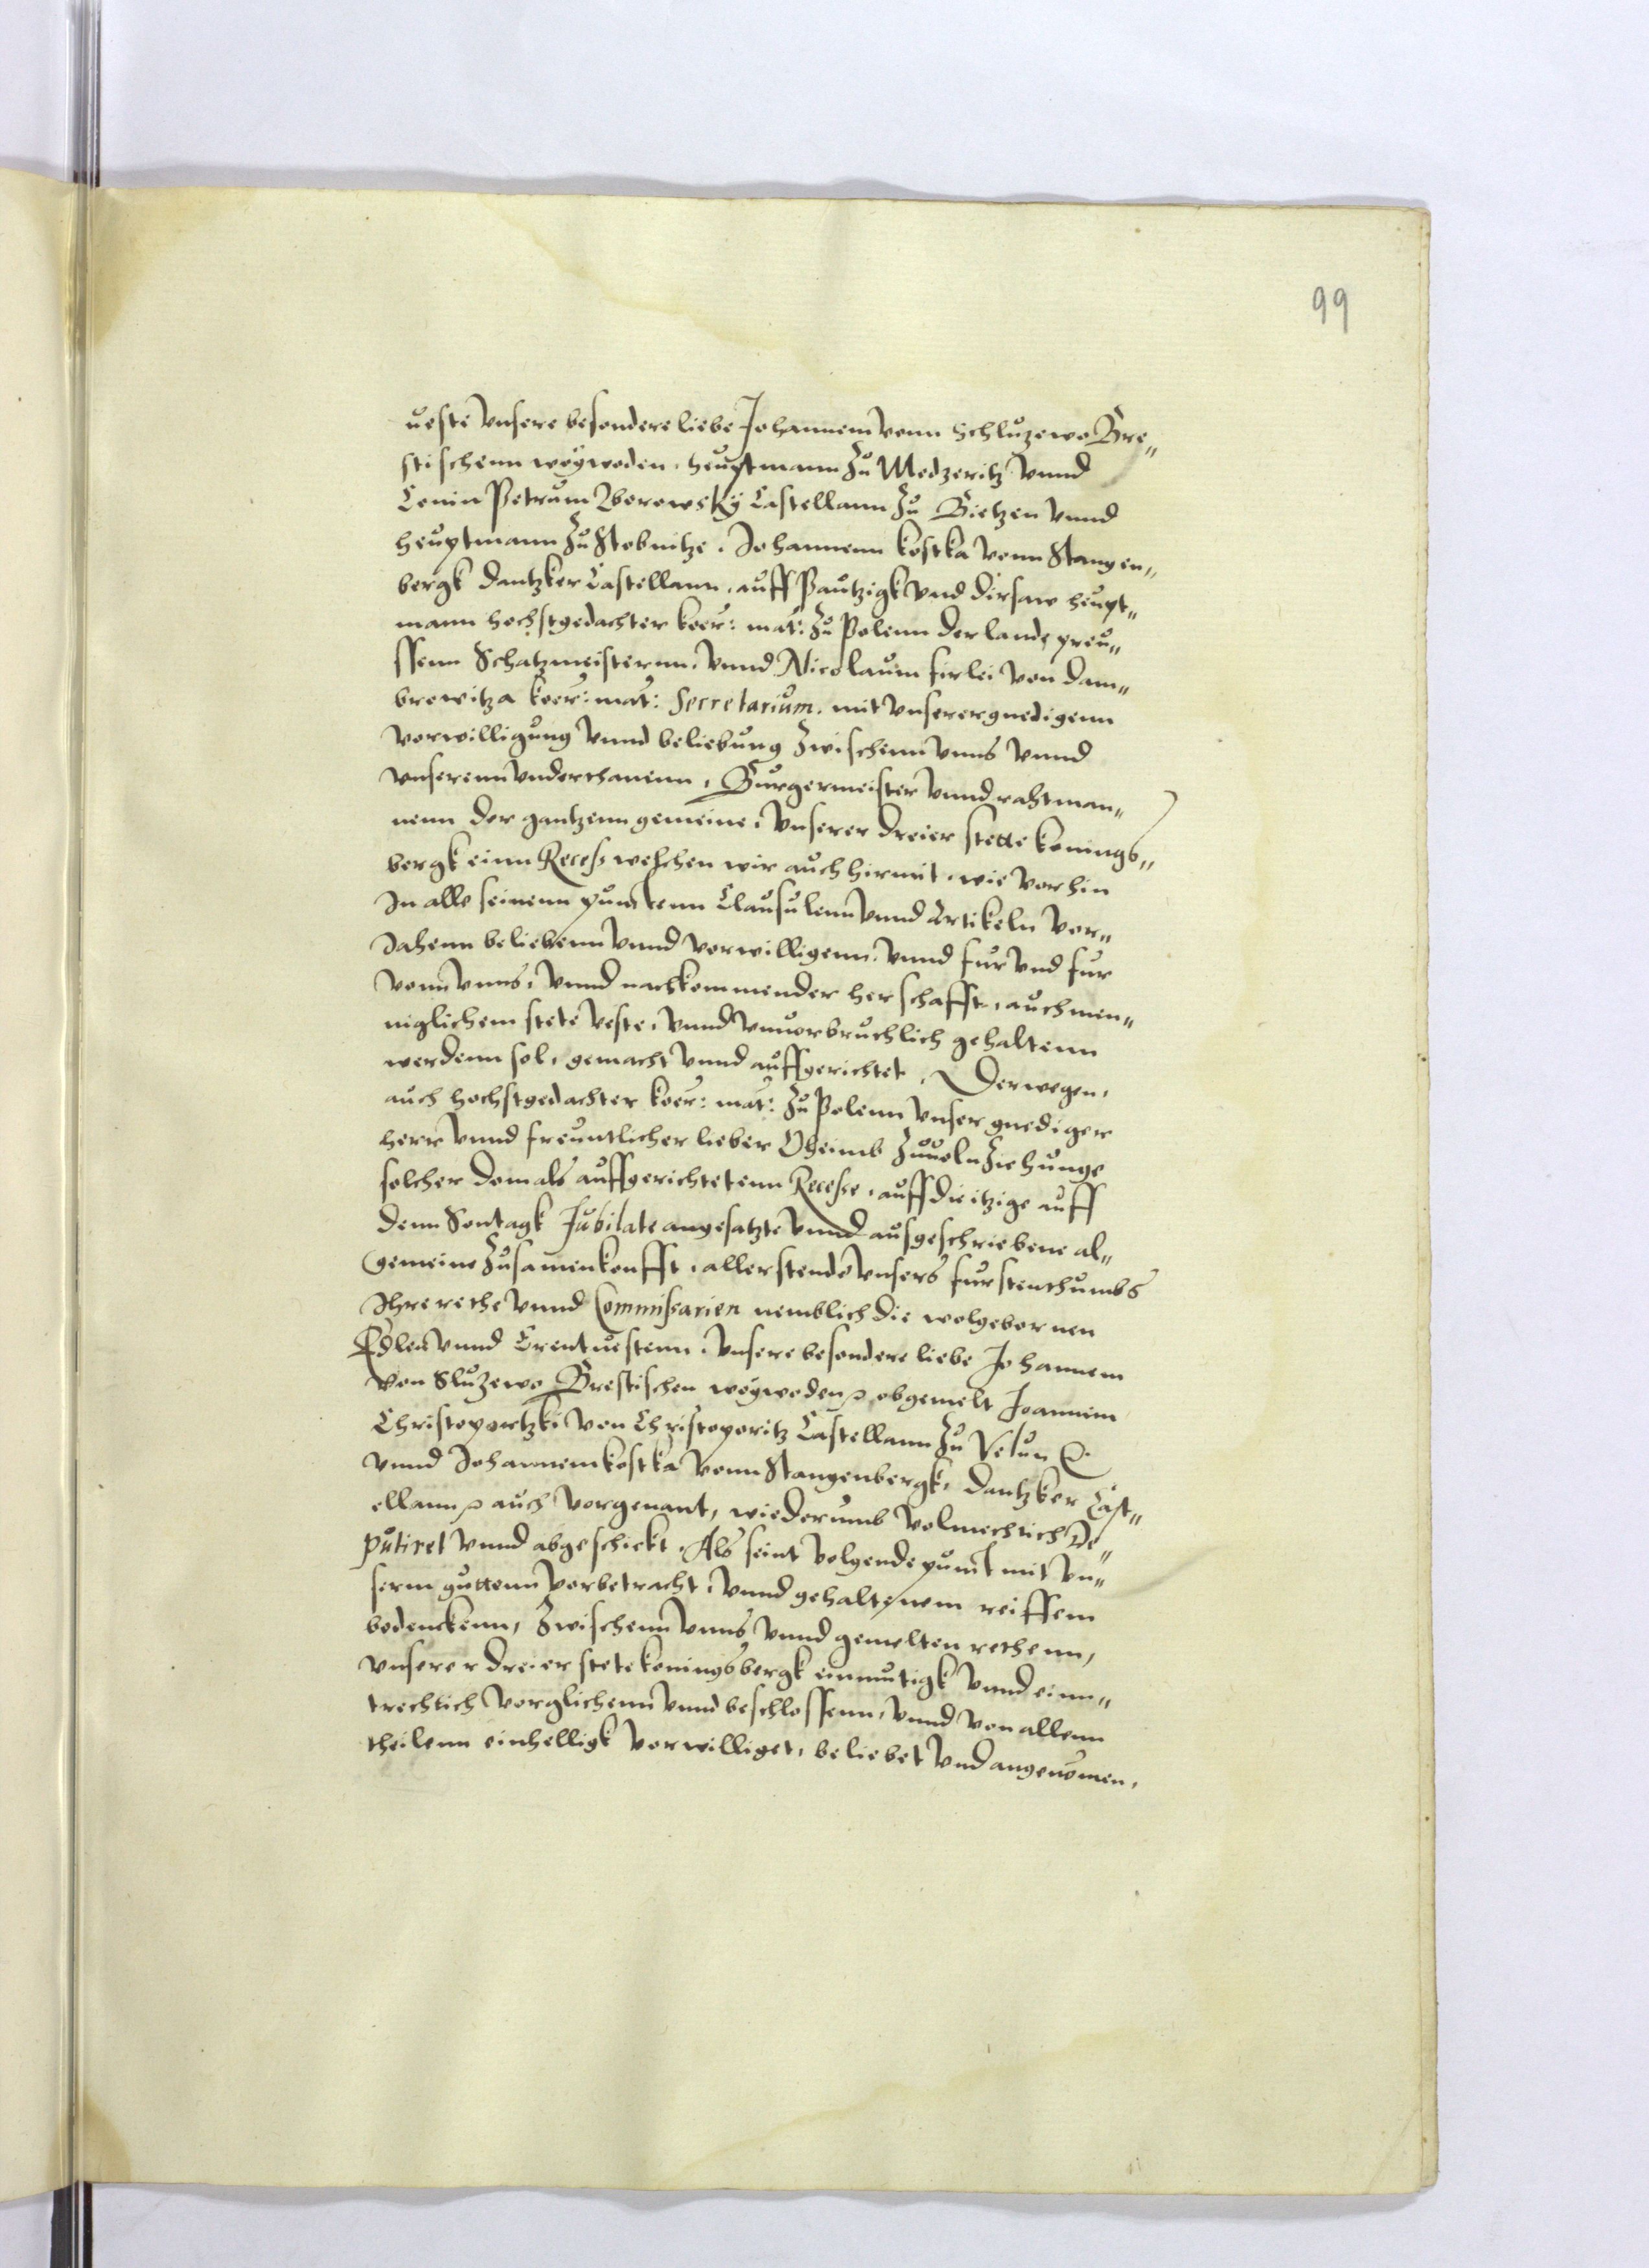 99
ueste Vnsere besondere liebe Johannem vonn Schluzewo Bre„
stischenn weywoden, heuptmann Zu Medzeritz vnnd
Conin Petrum Zborowsky Castellann Zu Bietzen vnnd
heuptmann Zu Stobnitze, Johannem Kostka vonn Stangen„
bergk dantzker Castellann, auff Pautzigk vnd dirsaw heupt„
mann hochstgedachter koer: mat: Zu Polenn der lande preu„
ssenn Schatzmeisternn, vnnd Nicolaum firlei von dam„
browitza koer: mat: Secretarium, mit vnserer gnedigenn
vorwilligung vnnd beliebung Zwischenn vnns vnnd
vnserenn vnderthanenn, Burgermeister vnnd rahtman„
nenn der gantzenn gemeine, vnserer dreier stette konings„
bergk einn Recess welchen wir auch hirmit, wie vorhin
In alle seinenn puncktenn Clausulenn vnnd Artikeln vor„
Jahenn beliebenn vnnd vorwilligenn, vnnd fur vnd fur
vonn vnns, vnnd nachkommender herschafft, auch men„
niglichem stete veste, vnnd vnuorbruchlich gehaltenn
werdenn sol, gemacht vnnd auffgerichtet, Derwegen,
auch hochstgedachter koer: mat: Zu Polenn vnser gnediger
herr vnnd freuntlicher lieber Oheimb Zuuolnziehunge
solcher domals auffgerichtetenn Recesse, auff die itzige auff
denn Sontagk Jubilate angesatzte vnnd ausgeschriebene al„
gemeine Zusamenkonfft, aller stende vnsers furstenthumbs
Ihre rethe vnnd Commissarien nemblich die wolgebornen
Edlen vnnd Erentuestenn, vnsere besondere liebe Johannem
von Sluzewo Brestischen weywoden obgemelt Joannem
Christoportzki von Christoporitz Castellann Zu Velun
vnnd Johannem kostka vonn Stangenbergk, dantzker Cast„
ellann auch vorgenant, wiederumb volmechtich De„
putiret vnnd abgeschickt. Als seint volgende punckt mit vn„
serm guttenn vorbetracht, vnnd gehaltenem reiffem
bedenckenn, Zwischenn vnns vnnd gemelten rethenn,
vnserer dreier stete koningsbergk einmutigk vnnd einn„
trechtich vorglichenn vnnd beschlossenn, vnnd von allenn
theilenn einhelligk vorwilliget, beliebet vnd angenomen,